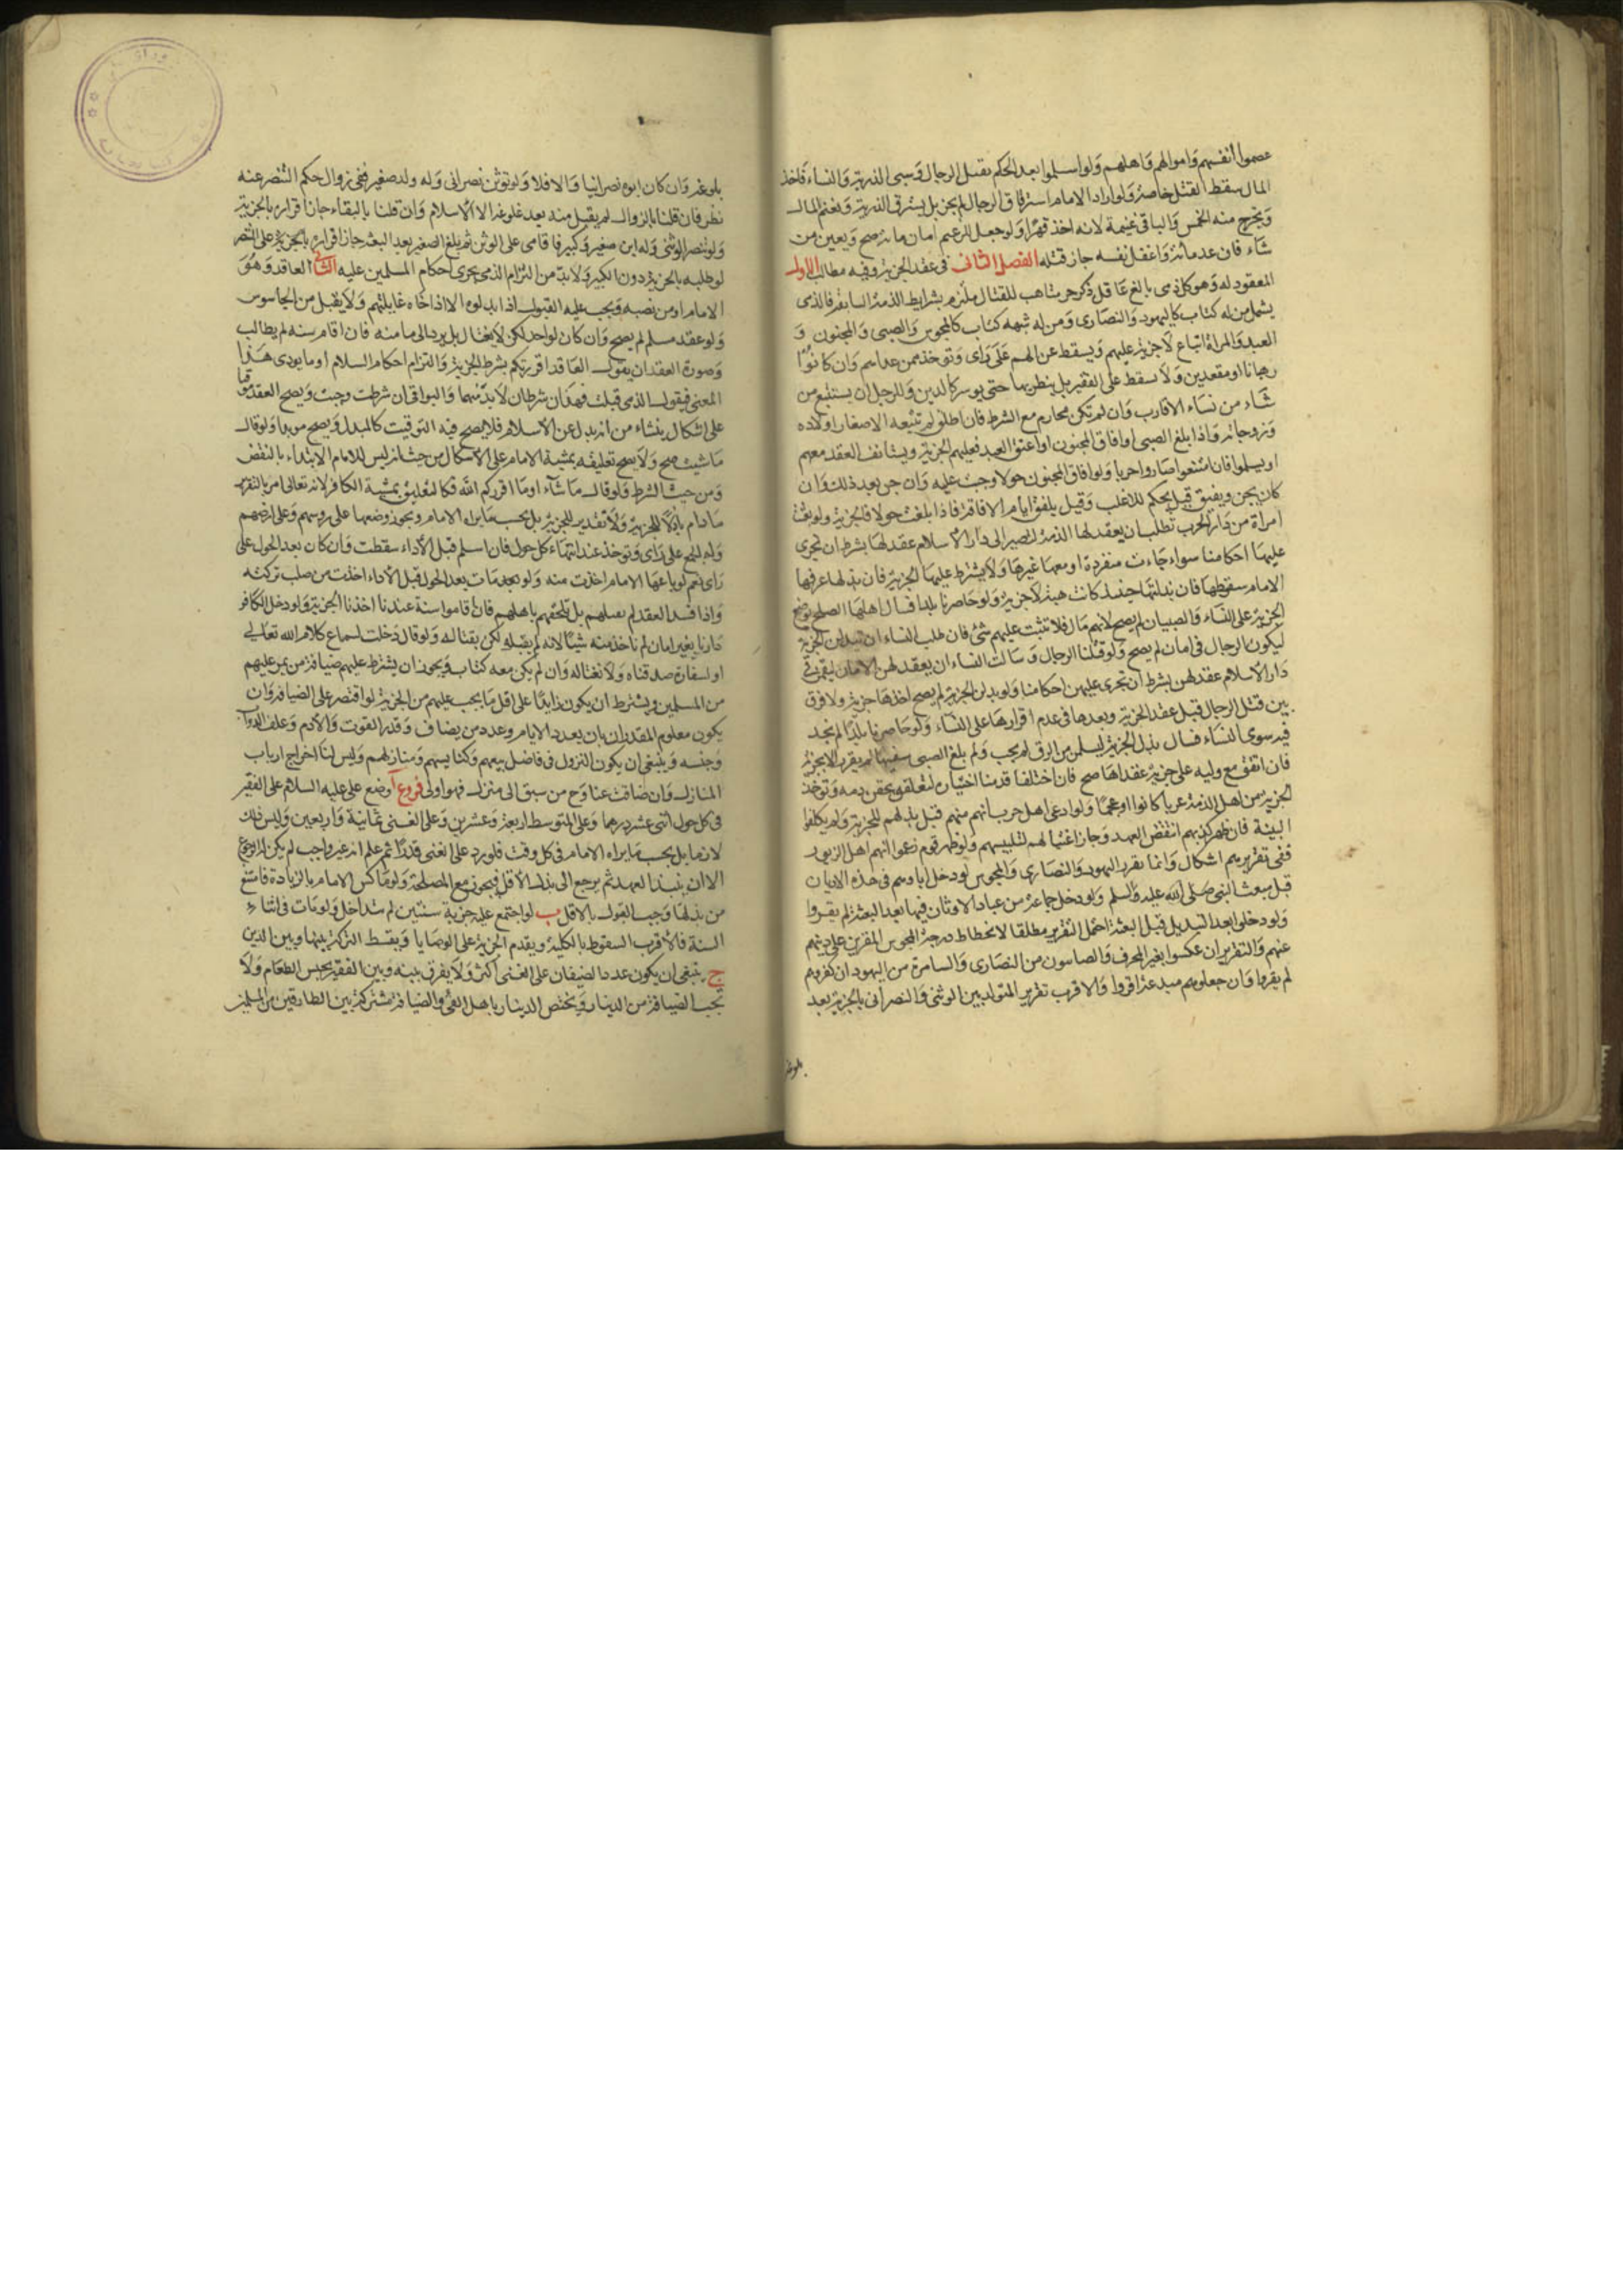 عصموا أنفسهم وأموالهم وأهلهم ولو اسلموا بعد الحكم بقتل الرجال وسبى الذرية والنساء واخذ
المال سقط القتل خاصة ولو اراد الامام استرقاق الرجال لم يجز بل يسترق الذرية ويغنم المال
ويخرج منه الخمس والباقى غنيمة لانه اخذ قهرا ولو جعل للزعيم امان مائة صح ويعين من
شاء فان عد مائة واغفل نفسه جاز قتله الفصل الثانى فى عقد الجزية وفيه مطالب الاول
المعقود له وهو كل ذمى بالغ عاقل ذكر حر متاهب للقتال ملتزم بشرايط الذمة السابقة فالذى
يشمل من له كتاب كاليهود والنصارى ومن له شبهه كتاب كالمجوس والصبى والمجنون و
العبد والمراة اتباع لا جزية عليهم ويسقط عن الهم على راى وتوخذ ممن عداهم وان كانوا
رهبانا او مقعدين ولا يسقط على الفقير بل ينظر بها حتى يوسر كالدين وللرجل ان يستتبع من
شاء من نساء الاقارب وان لم تكن محارم مع الشرط فان اطلق لم تتبعه الا صغار اولاده
وزوجاته واذا بلغ الصبى او افاق المجنون او اعتق العبد فعليهم الجزية ويستانف العقد معهم
او يسلموا فان امتنعوا صاروا حربا ولو افاق المجنون حولا وجبت عليه وان جن بعد ذلك وان
كان يجن ويفيق قيل يحكم للاغلب وقيل يلفق ايام الافاقة فاذا بلغت حولا فالجزية ولو بعثت
امراة من دار الحرب تطلب ان يعقد لها الذمة لتصير الى دار الاسلام عقد لها بشرط ان تجرى
عليها احكامنا سواء جاءت منفردة او معها غيرها ولا يشترط عليها الجزية فان بذلتها عرفها
الامام سقوطها فان بذلتها حينئذ كانت هبة لا جزية ولو حاصرنا بلدا فسال اهلها الصلح بوضع
الجزية على النساء والصبيان لم يصح لانهم مال فلا تثبت عليهم شئ فان طلب النساء ان تبذلن الجزية
ليكون الرجال فى امان لم يصح ولو قتلنا الرجال وسالت النساء ان يعقد لهن الامان ليقمن فى
دار الاسلام عقد لهن بشرط ان تجرى عليهن احكامنا ولو بذلن الجزية لم يصح اخذها جزية ولا فرق
بين قتل الرجال قبل عقد الجزية وبعدها فى عدم اقرارها على النساء ولو حاصرنا بلدا لم نجد
فيه سوى النساء فسال بذل الجزية ليسلمن من الرق لم يجب ولو بلغ الصبى سفيها لم يقر الا بجزية
فان اتفق مع وليه على جزية عقداها صح فان اختلفا قدمنا اختياره لتعلقه بحقن دمه وتوخذ
الجزية من اهل الذمة عربا كانوا او عجما ولو ادعى اهل حرب انهم منهم قبل بذلهم للجزية ولم يكلفوا
البينة فان ظهر كذبهم انتقض العهد وجاز اغتيالهم لتلبيسهم ولو ظهر قوم زعموا انهم اهل الزبور
ففى تقريرهم اشكال وانما نقرر اليهود والنصارى والمجوس لو دخل اباوهم فى هذه الاديان
قبل مبعث النبى صلى الله عليه والسلم ولو دخل جماعة من عباد الاوثان فيها بعد البعثة لم يقروا
ولو دخلوا بعد التبديل قبل البعثة احتمل التقرير مطلقا لانحطاط درجة المجوس المقرين على دينهم
عنهم والتقرير ان عكسوا بغير المحرف والصابئون من النصارى والسامرة من اليهود ان كفروهم
لم يقروا وان جعلوهم مبدعة اقروا والاقرب تقرير المتولد بين الوثنى والنصرانى بالجزية بعد
بلوغه
بلوغه وان كان ابوه نصرانيا والا فلا ولو توثن نصرانى وله ولد صغير ففى زوال حكم التنصر عنه
نظر فان قلنا بالزوال لم يقبل منه بعد بلوغه الا الاسلام وان قلنا بالبقاء جاز اقراره بالجزية
ولو تنصر الوثنى وله ابن صغير وكبير فاقامى على الوثن ثم بلغ الصغير بعد البعثة جاز اقراره بالجزية على التنصر
لو طلبه بالجزية دون الكبير ولا بد من التزام الذمى بجرى احكام المسلمين عليه الثانى العاقد وهو
الامام او من نصبه ويجب عليه القبول اذا بذلوه الا اذا خاف غايلتهم ولا يقبل من الجاسوس
ولو عقد مسلم لم يصح وان كان لواحد لكن لا يغتال بل يرد الى مامنه فان اقام سنه لم يطالب
وصورة العقد ان يقول العاقد اقررتكم بشرط الجزية والتزام احكام السلام او ما يودى هذا
المعنى فيقول الذمى قبلت فهذان شرطان لا بد منهما والبواقى ان شرطت وجبت ويصح العقد موقتا
على اشكال ينشاء من انه بدل عن الاسلام فلا يصح فيه التوقيت كالمبدل ويصح موبدا ولو قال
ما شئت صح ولا يصح تعليقه بمشية الامام على الاشكال من حيث انه ليس للامام الابتداء بالنقض
ومن حيث الشرط ولو قال ما شاء او ما اقركم الله فكالتعليق بمشية الكافر لانه تعالى امر بالتقرير
ما دام باذلا للجزية ولا تقدير للجزية بل بحسب ما يراه الامام ويجوز وضعها على روسهم وعلى ارضهم
وله الجمع على راى وتوخذ عند انتهاء كل حول فان اسلم قبل الاداء سقطت وان كان بعد الحول على
راى نعم لو باعها الامام اخذت منه ولو بعد مات بعد الحول قبل الاداء اخذت من صلب تركته
واذا فسد العقد لم نغتلهم بل نلحقهم باهلهم فان اقاموا سنة عندنا اخذنا الجزية ولو دخل الكافر
دارنا بغير امان لم ناخذ منه شيئا لانه لم يقبله لكن يقتاله ولو قال دخلت لسماع كلام الله تعالى
او لسفارة صدقناه ولا نغتاله وان لم يكن معه كتاب ويجوز ان يشترط عليهم ضيافة من يمر عليهم
من المسلمين ويشترط ان يكون زايدا على اقل ما يجب عليهم من الجزية لو اقتصر على الضيافة وان
يكون معلوم المقدار بان يعدد الايام وعدد من يضاف وقدر القوت والادم وعلف الدواب
وجنسه وينبغى ان يكون النزول فى فاضل بيعهم وكنايسهم ومنازلهم وليس لنا اخراج ارباب
المنازل وان ضاقت عنا وح من سبق الى منزل فهو اولى فروع آ وضع على عليه السلام على الفقير
فى كل حول اثنى عشر درهما وعلى المتوسط اربعة وعشرين وعلى الغنى ثمانية واربعين وليس ذلك
لازما بل بحسب ما يراه الامام فى كل وقت فلو رد على الغنى قدرا ثم علم انه غير واجب لم يكن له الرجوع
الا ان ينبذ العهد ثم يرجع الى بذل الاقل فيجوز مع المصلحة ولو ماكس الامام بالزيادة فامتنع
من بذلها وجب القول بالاقل ب لو اجتمع عليه جزية سنتين لم تتداخل ولو مات فى اثناء
السنة فالاقرب السقوط بالكلية ويقدم الجزية على الوصايا ويقسط التركة بينها وبين الدين
ج ينبغى ان يكون عدد الضيفان على الغنى اكثر ولا يفرق بينه وبين الفقير بجنس الطعام ولا
تحسب الضيافة من الدينار ويختص الدينار باهل الفئ والضيافة مشتركة بين الطارقين من المسلمين